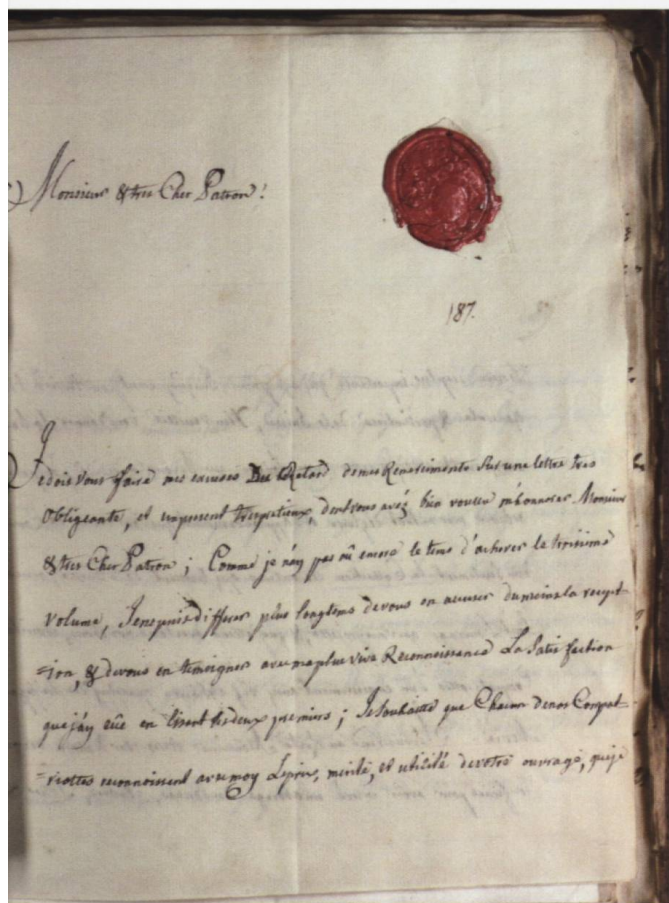 Monsieur & tres Cher Patron!
187.
Je dois vous faire mes excuses Du Retard de mes Remerciments sur une lettre tres
Obligeante, et un present tres pretieux dont vous avéz bien voulu m'honnorer Monsieur
& tres Cher Patron; Comme je n'ay pas eû encore le tems d'achever le troisieme
Volume, Je ne puis differer plus longtems de vous en accuser du moins la recept-
=ion, & de vous en temoigner avec ma plus vive Reconnoissance La Satisfaction
que j'ay eüe en lisant les deux premiers; Je souhaitte que Chacun de nos Compat-
=riottes reconnoissent avec moy Le prix, merite, et utilité de votre ouvrage, que je